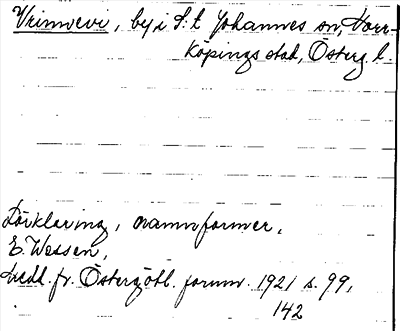 Vrinnevi, by i S:t Johannes sn, Norr-
köpings stad, Österg. l.
Förklaring, namnformer,
E. Wessén,
Medd. fr. Östergötl. fornm. 1921 s. 99,
142